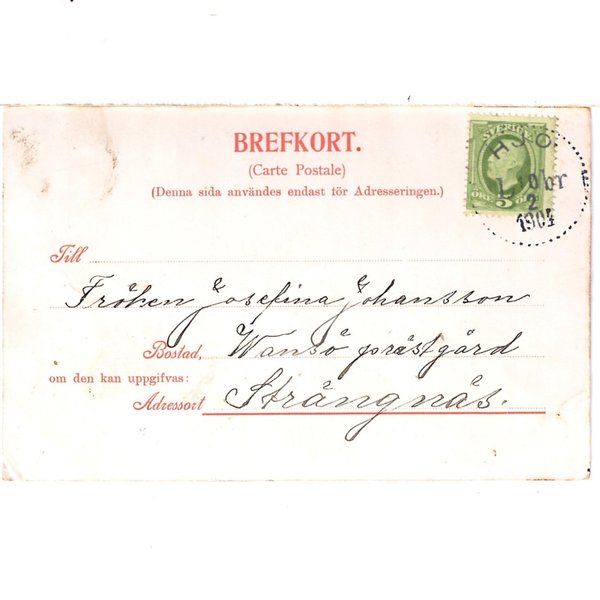 BREFKORT.
(Carte Postale)
(Denna sida användes endast för Adresseringen.)
SVERIGE
ÖRE 5
HJO
10br
2
1904
Till
Fröken Josefina Johansson
Bostad, Wansö prästgård
om den kan uppgifvas:
Adressort Strängnäs.